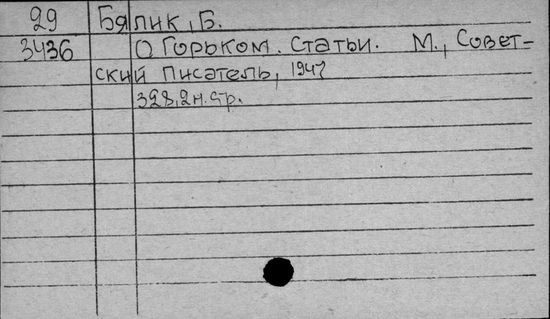 29 Бялик, Б.
3436 О Горьком. Статьи. М., Совет-
ский писатель, 1947
328, 2 н. стр.